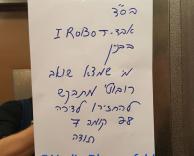 בס"ד
אבד - I ROBOT
בבנין
מי שמצא שואב
רובוטי מתבקש
להחזירו לדירה
28 קומה 7
תודה